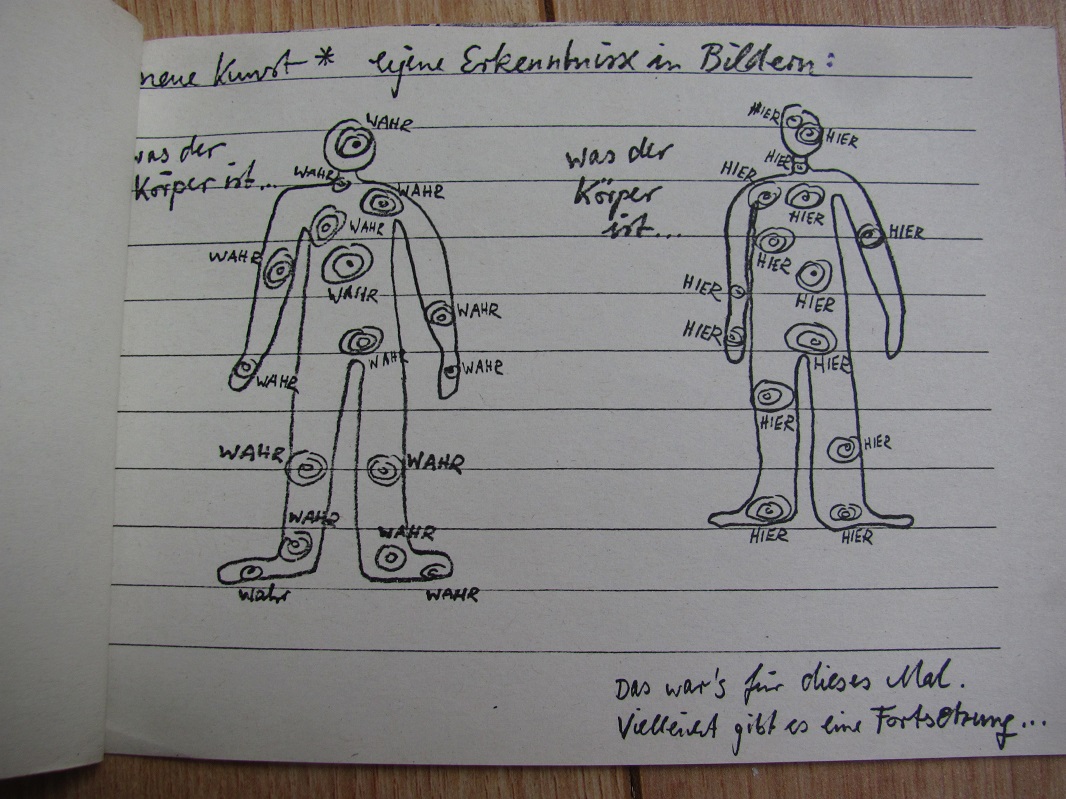 neue Kunst * eigene Erkenntnisse in Bildern:
was der
Körper ist...
WAHR
WAHR
WAHR
WAHR
WAHR
WAHR
WAHR
WAHR
WAHR
WAHR
WAHR
WAHR
WAHR
WAHR
Wahr
WAHR
was der
Körper
ist...
HIER
HIER
HIER
HIER
HIER
HIER
HIER
HIER
HIER
HIER
HIER
HIER
HIER
HIER
HIER
Das war's für dieses Mal.
Vielleicht gibt es eine Fortsetzung...